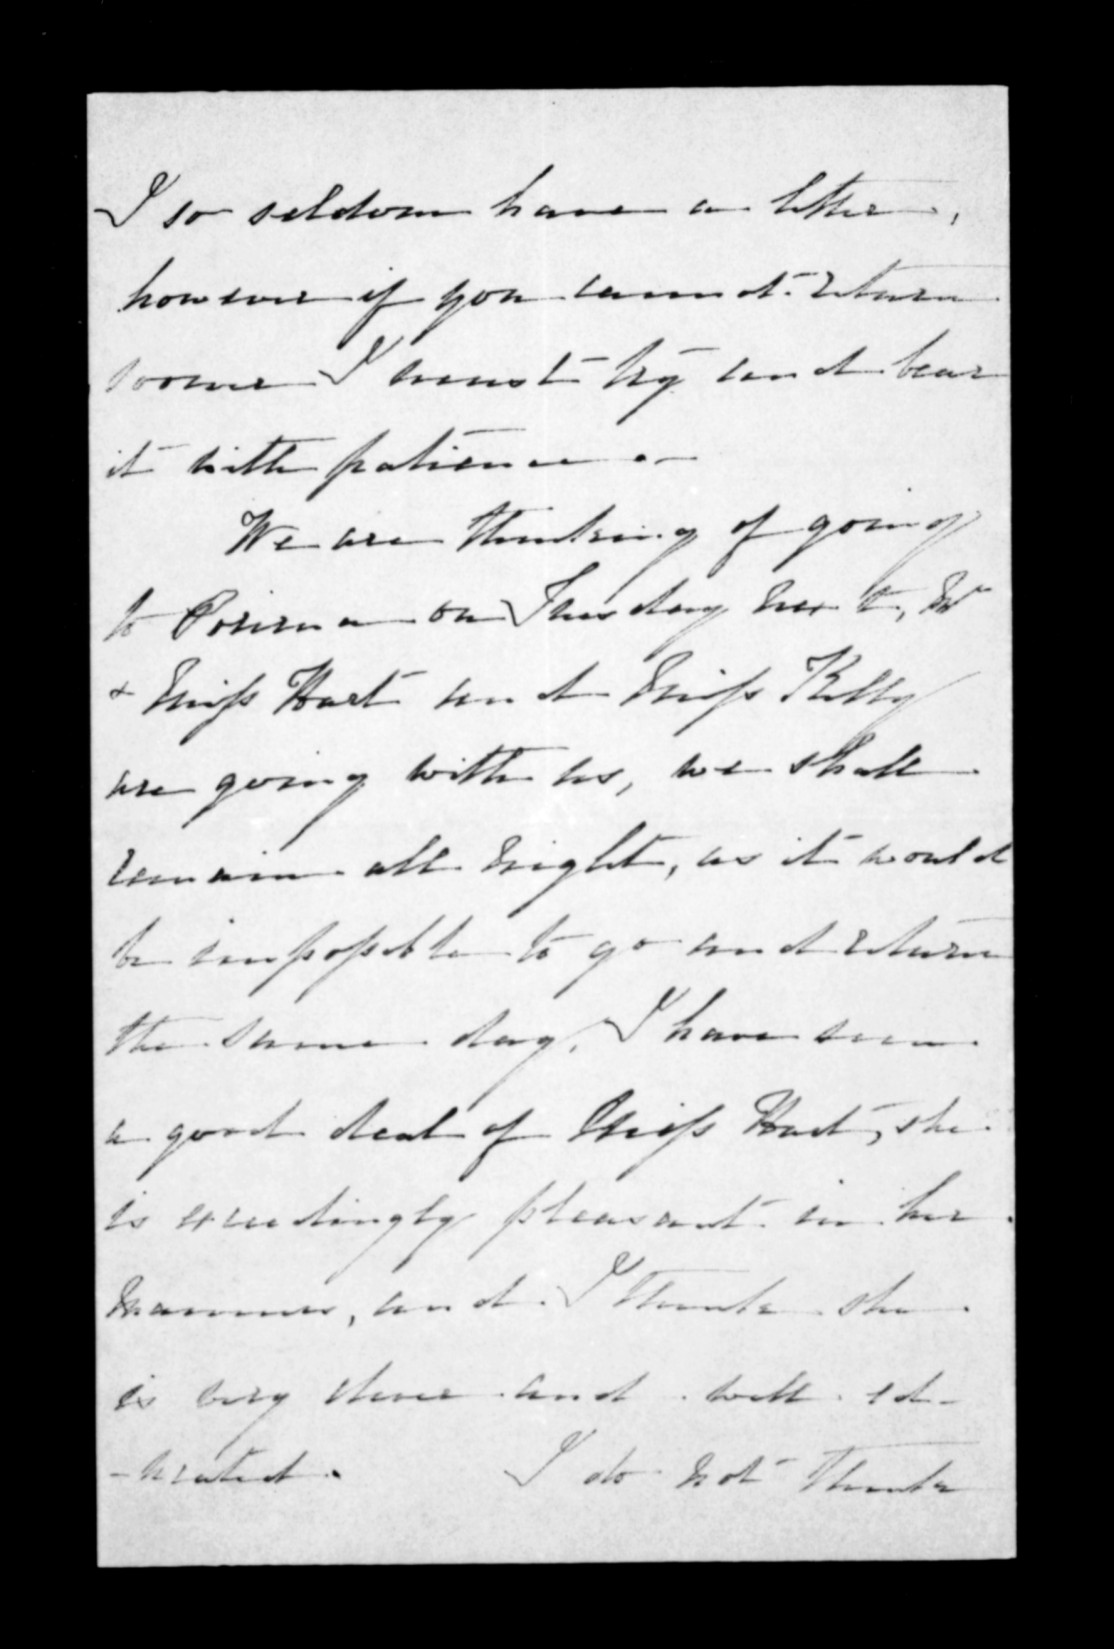 I so seldom have a letter,
however if you cannot return
sooner I must try and bear
it with patience.
We are thinking of going
to Porirua on Tuesday next, Mr
& Miss Hart and Miss Kelly
are going with us, we shall
remain all night, as it would
be impossible to go and return
the same day. I have seen
a good deal of Miss Hart, she
is exceedingly pleasant in her
manner, and I think she
is very clever and well ed-
-ucated. I do not think